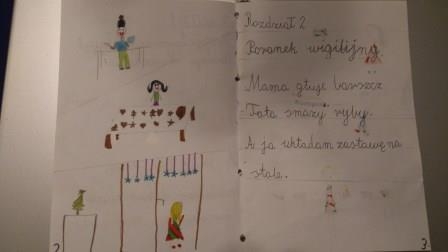 Rozdział 2
Poranek wigilijny
Mama gtuje barszcz
Tata smaży ryby.
A ja układam zastawę na
stole.
2
3